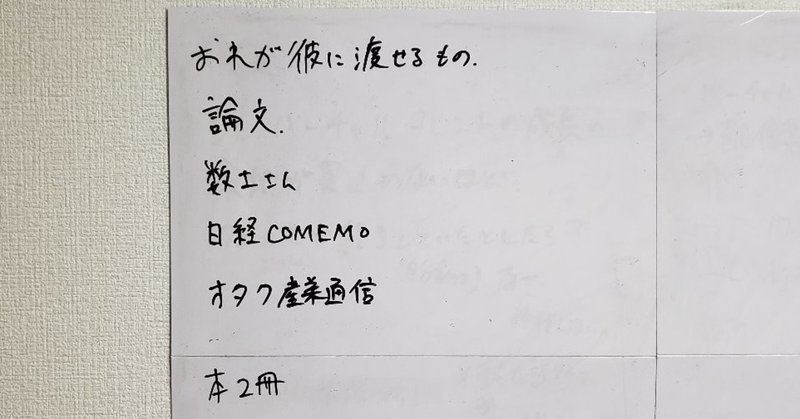 おれが彼に渡せるもの.
論文.
数土さん
日経COMEMO
オタク産業通信
本2冊